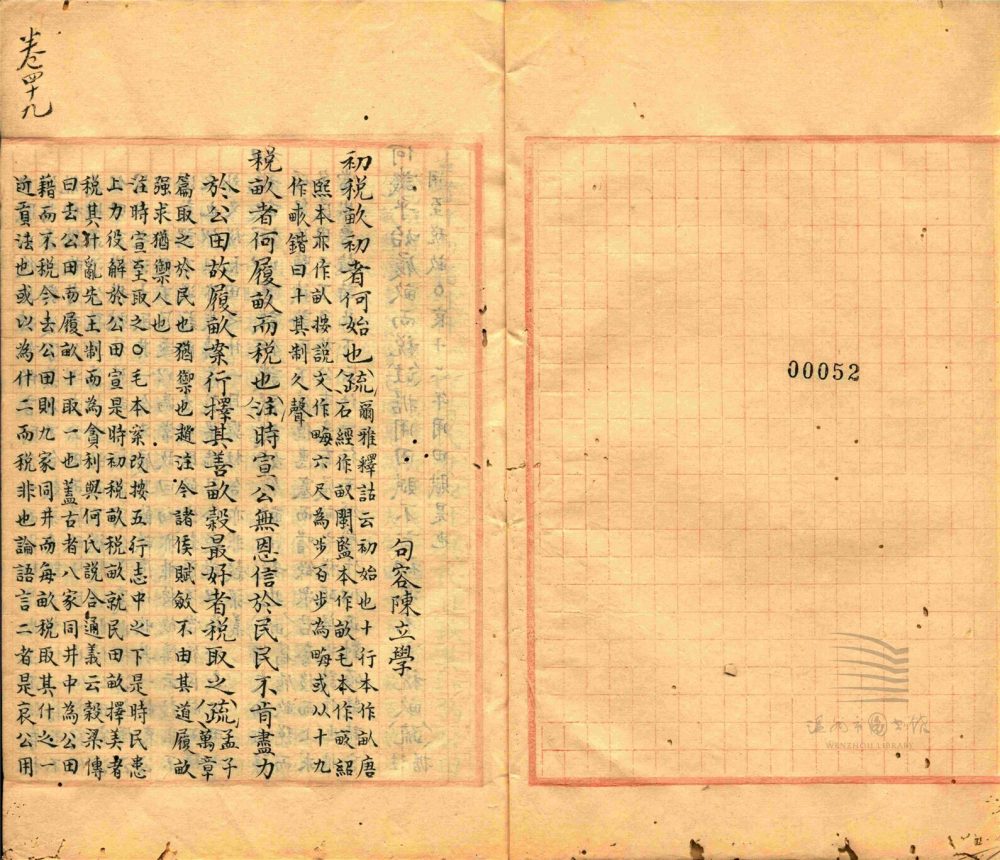 00052
溫州市圖書館
WENZHOU LIBRARY
卷四十九
句容陳立學
初稅畝初者何始也疏爾雅釋詁云初始也十行本作畝唐
石經作畝閩監本作畝毛本作畝紹
熙本亦作畝按說文作畮六尺為步百步為畮或以十九
作畮鍇曰十其制久聲
稅畝者何履畝而稅也注時宣公無恩信於民民不肯盡力
於公田故履畝案行擇其善畝穀最好者稅取之疏孟子
萬章
篇取之於民也猶禦也趙注今諸侯賦斂不由其道履畝
强求猶禦人也
注時宣至取之○毛本案改按五行志中之下是時民患
上力役解於公田宣是時初稅畝稅畝就民田畝擇美者
稅其什亂先王制而為貪利與何氏說合通義云穀梁傳
曰去公田而履畝十取一也蓋古者八家同井中為公田
藉而不稅今去公田則九家同井而每畝稅取其什之一
近貢法也或以為什二而稅非也論語言二者是哀公用